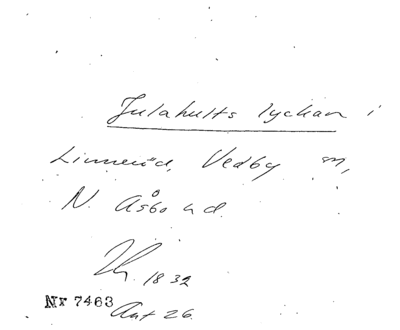 Julahults lyckan i
Linneröd, Vedby m,
N. Åsbo hd.
Th. 1832
Nr 7463
Ant 26.